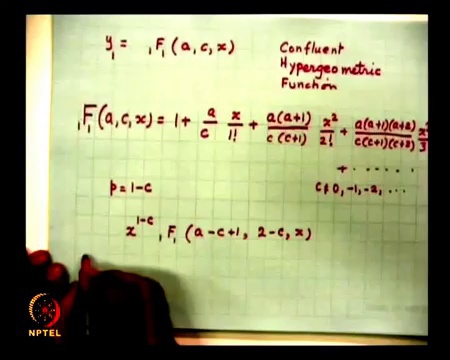 y₁ = ₁F₁ (a, c, x)
Confluent
Hypergeometric
Function
₁F₁(a, c, x) = 1 + a/c x/1! + a(a+1)/c(c+1) x²/2! + a(a+1)(a+2)/c(c+1)(c+2) x³/3!
+ ......
p = 1-c
c ≠ 0, -1, -2, ...
x^(1-c) ₁F₁ (a-c+1, 2-c, x)
NPTEL